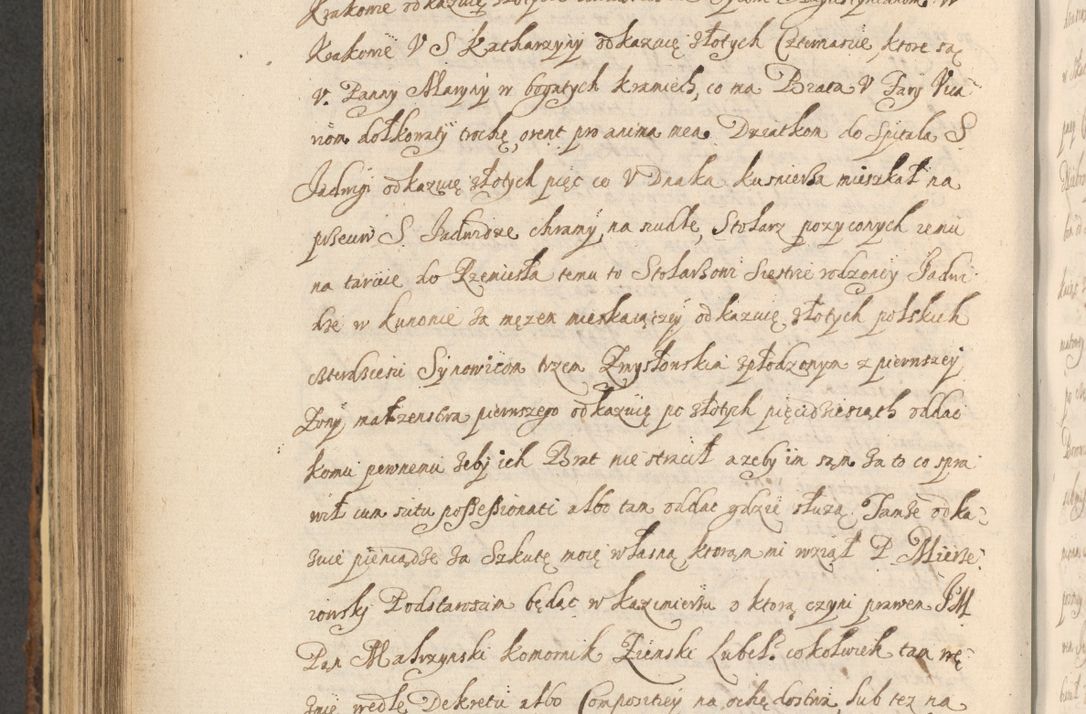 Krakowie odkazuię złotych
Krakowie V S Katharzyny odkazuię złotych Czternascie, ktore są
V. Panny Maryiy w bogatych kramiech, co na Brata V Fary Vica
riom dołkowaty trochę, orent pro anima mea. Dziatkom do Spitala S.
Jadwigi odkazuię złotych pięc co V Dnaka kusnierza mieszkał na
przeciw S. Jadwidze chramy, na rudłe, Stolarz pozyconych iemu
na tarcice do Rzemiesła temu to Stolarzowi Siestrze rodzoney Jadwi
dze w Kunowie za męzem mieszkaiączey odkazuię złotych polskich
czterdziesci Synowicom trzem Zmysłowskim zpłodzonym z pierwszey
Zony małzenstwa pierwszego odkazuię po złotych pięcidziesiąth oddac
komu pewnemu żeby ich Brat nie stracił a zeby im sam za to co spra
wił cum situ possessionati albo tam oddac gdzie słuzą. Tamże odka-
zuie pieniądze za Szkutę moię własną, ktorąm mi wziął P. Mierze-
iowsky Podstarosćim będąc w Kazimierzu o ktorą czyni prawem JM
Pan Makrzynski Komornik Ziemski Lubel. cokolwiek tam wę
zmie wedle Dekretu albo Compositiey na ochędostwa, lub tez na